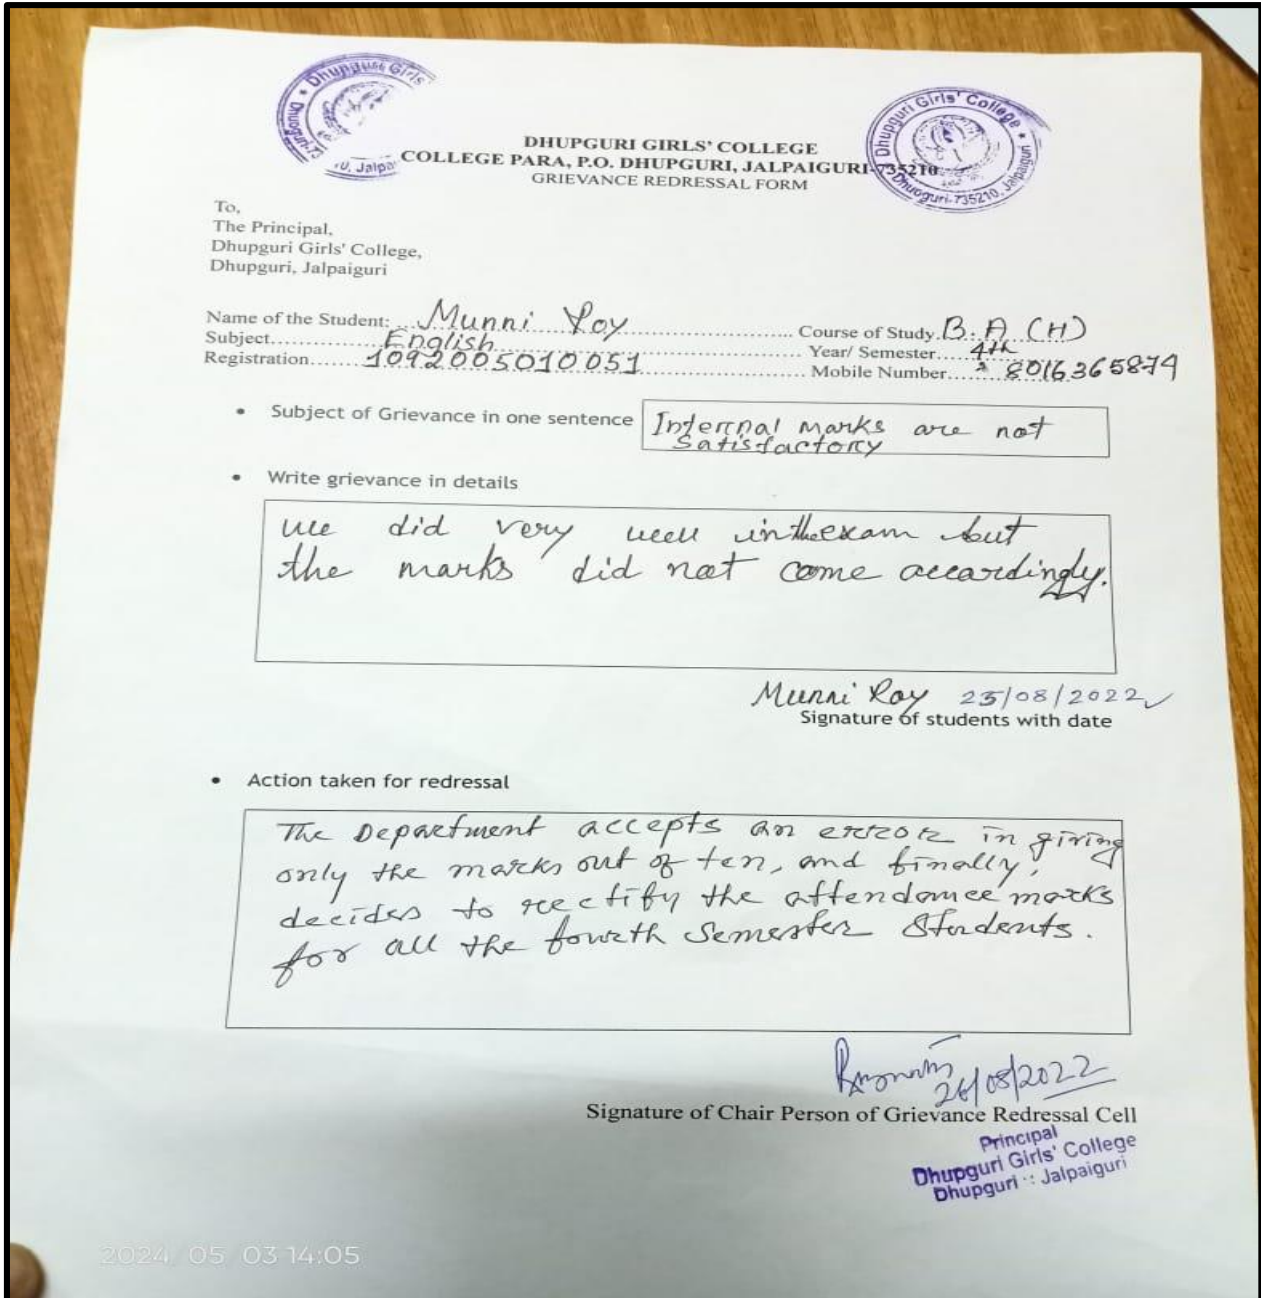 Dhupguri Girls
Dhupguri-73
0, Jalpai
Dhupguri Girls' College
Dhupguri-735210, Jalpaiguri
DHUPGURI GIRLS' COLLEGE
COLLEGE PARA, P.O. DHUPGURI, JALPAIGURI-735210
GRIEVANCE REDRESSAL FORM
To,
The Principal,
Dhupguri Girls' College,
Dhupguri, Jalpaiguri
Name of the Student: Munni Roy Course of Study B.A (H)
Subject English Year/ Semester 4th
Registration 1092005010051 Mobile Number 8016365874
• Subject of Grievance in one sentence Internal marks are not
Satisfactory
• Write grievance in details
We did very well in the exam but
the marks did not come accardingly.
Munni Roy 25/08/2022
Signature of students with date
• Action taken for redressal
The Department accepts an error in giving
only the marks out of ten, and finally,
decides to rectify the attendance marks
for all the fourth Semester Students.
26/08/2022
Signature of Chair Person of Grievance Redressal Cell
Principal
Dhupguri Girls' College
Dhupguri :: Jalpaiguri
2024/05/03 14:05